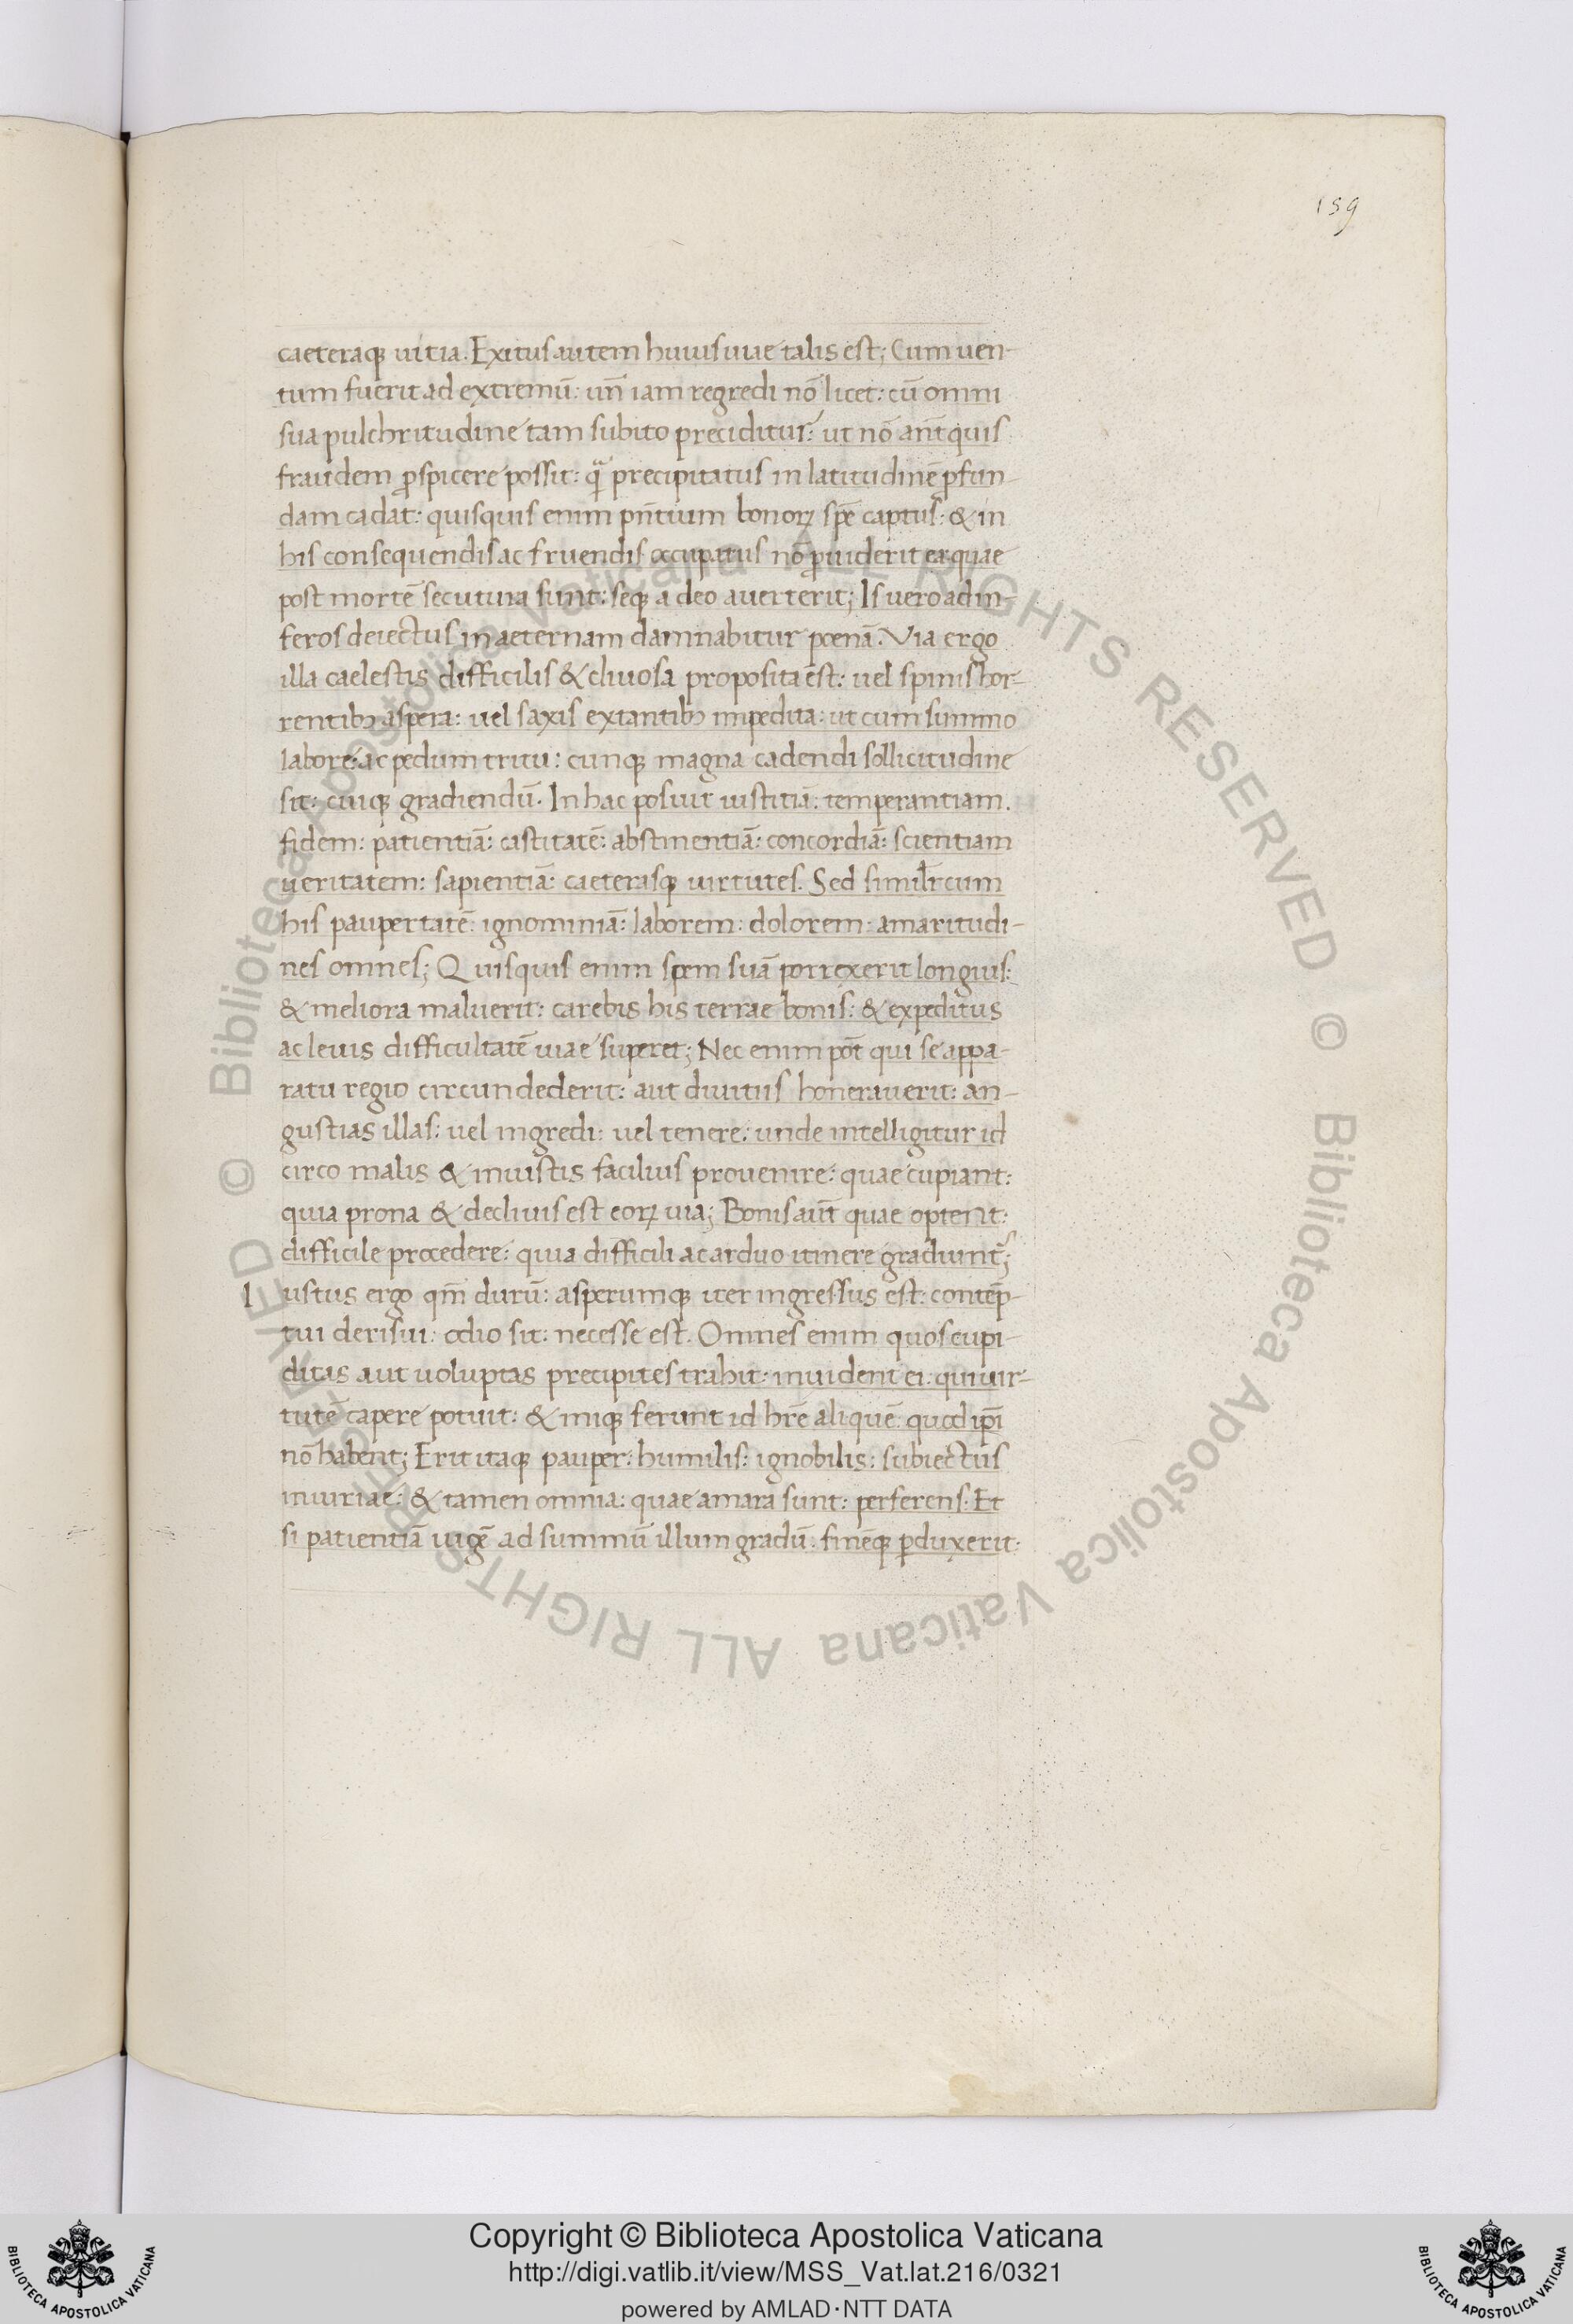 159
caeteraqꝫ uitia. Exitus autem huius uiae talis est; Cum uen-
tum fuerit ad extremū: un̄ iam regredi nō licet: cū omni
sua pulchritudine tam subito preciditur: ut nō an̄t quis
fraudem ꝓspicere possit: qͣ precipitatus in latitudinē ꝓfun-
dam cadat: quisquis enim pn̄tium bonoꝝ spē captus: & in
his consequendis ac fruendis occupatus nō ꝓuiderit ea quae
post mortē secutura sunt: seqꝫ a deo auerterit; Is uero ad in-
feros deiectus in aeternam damnabitur poenā. Via ergo
illa caelestis difficilis & cliuosa proposita est: uel spinis hor-
rentibꝫ aspera: uel saxis extantibꝫ impedita: ut cum summo
labore: ac pedum tritu: cunqꝫ magna cadendi sollicitudine
sit: cuiqꝫ gradiendū. In hac posuit iustitiā: temperantiam.
fidem: patientiā: castitatē: abstinentiā: concordiā: scientiam
ueritatem: sapientiā: caeterasqꝫ uirtutes. Sed simil̄r cum
his paupertatē: ignominiā: laborem: dolorem: amaritudi-
nes omnes; Quisquis enim spem suā porrexerit longius:
& meliora maluerit: carebis his terrae bonis: & expeditus
ac leuis difficultatē uiae superet; Nec enim pōt qui se appa-
ratu regio circundederit: aut diuitiis honerauerit: an-
gustias illas: uel ingredi: uel tenere: unde intelligitur id
circo malis & iniustis facilius prouenire: quae cupiant:
quia prona & decliuis est eoꝝ uia; Bonis aūt quae optent:
difficile procedere: quia difficili ac arduo itinere gradiunt᷑;
Iustus ergo qm̄ durū: asperumqꝫ iter ingressus est: contēp-
tui derisui: odio sit: necesse est. Omnes enim quos cupi-
ditas aut uoluptas precipites trahit: inuident ei: qui uir-
tutē capere potuit: & iniqꝫ ferunt id hr̄e aliquē: quod ip̄i
nō habent; Erit itaqꝫ pauper: humilis: ignobilis: subiectus
iniuriae: & tamen omnia: quae amara sunt: perferens: Et
si patientiā iugē ad summū illum gradū: finēqꝫ ꝑduxerit:
© Biblioteca Apostolica Vaticana ALL RIGHTS RESERVED
© Biblioteca Apostolica Vaticana ALL RIGHTS RESERVED
Copyright © Biblioteca Apostolica Vaticana
http://digi.vatlib.it/view/MSS_Vat.lat.216/0321
powered by AMLAD·NTT DATA
BIBLIOTECA APOSTOLICA VATICANA
BIBLIOTECA APOSTOLICA VATICANA